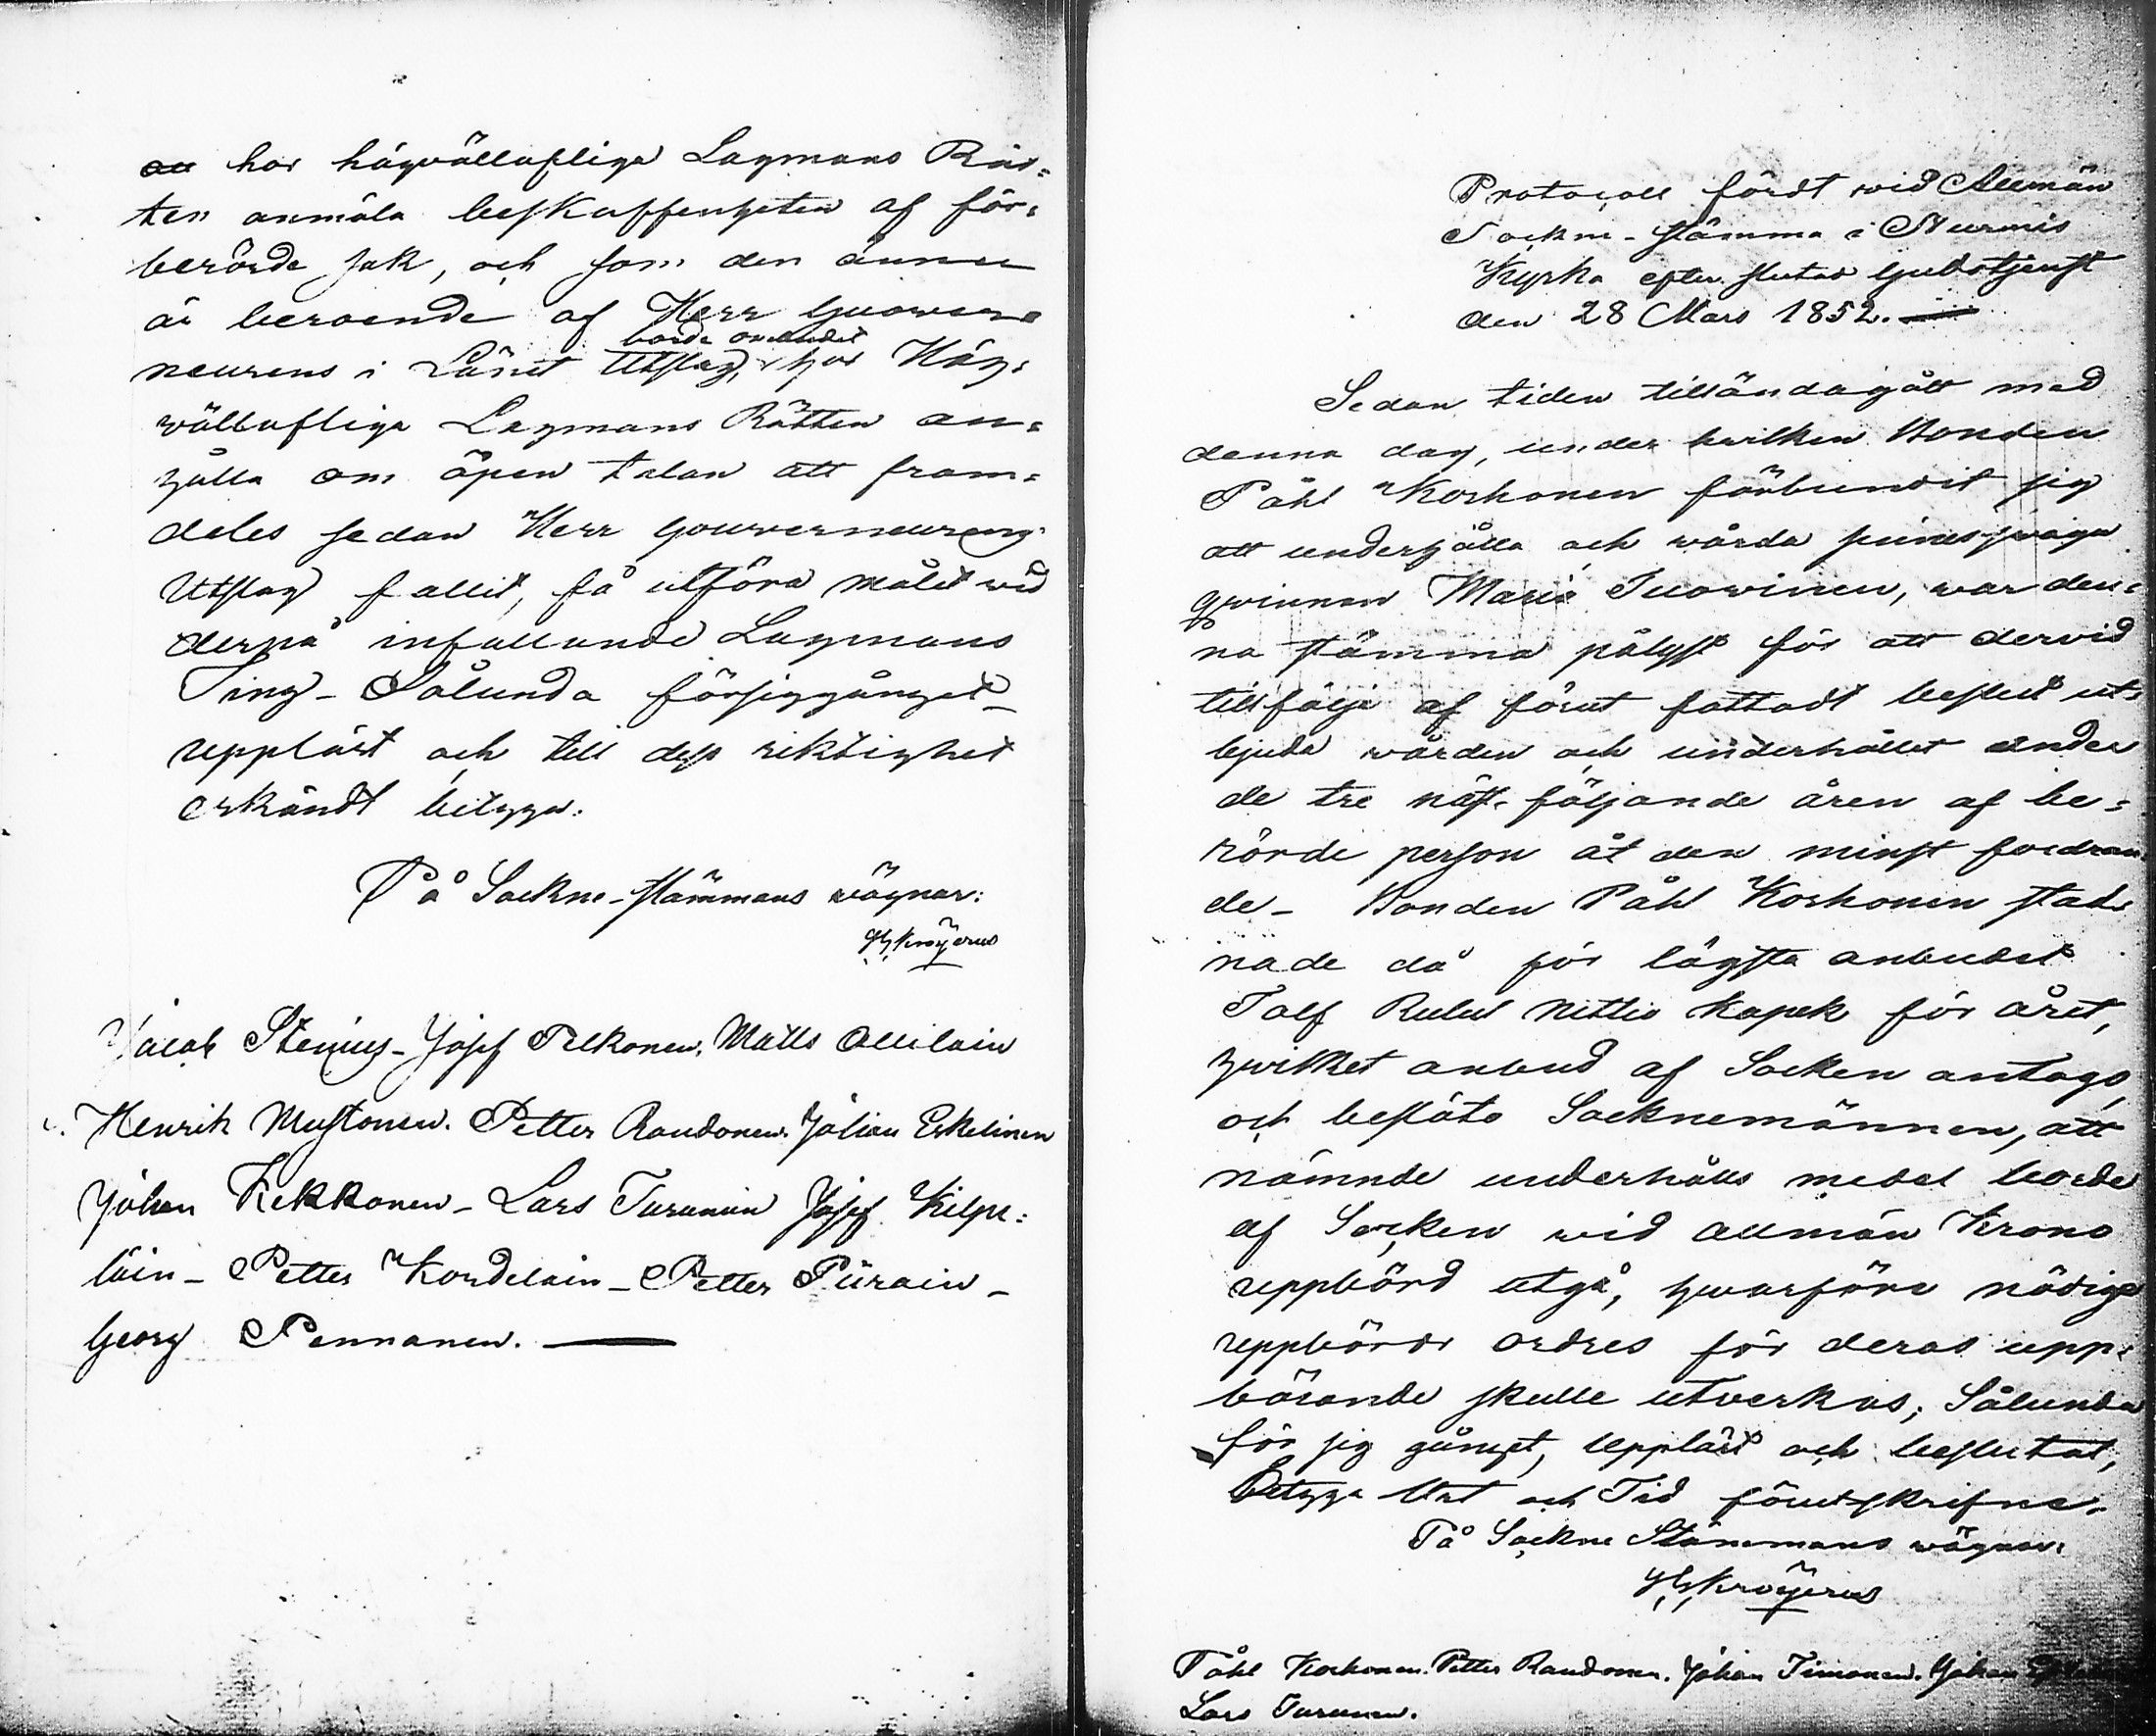 hos högvällofliga Lagmans Rät=
ten anmäla beskaffenheten af för=
berörde sak, och som den ännu
är beroende af Herr Guover=
borde omedelst
neurens i Länet Utslag, hos Hög=
vällofliga Lagmans Rätten an=
hålla om öpen talan att fram=
deles sedan Herr Gouverneurens
Utslag fallit, få utföra målet wid
derpå infallande Lagmans
Ting - Sålunda försiggånget -
uppläst och till dess riktighet
erkändt betyga.
På Sockne-stämmans wägnar:
Kröyerus
Jacob Stenius - Josef Pelkonen, Matts Ollilain
Henrik Mustonen. Petter Raudonen. Johan Eskelinen
Johan Kekkonen - Lars Turunen Josef Kilpe=
läin - Petter Kordelain - Petter Piirain -
Georg Pennanen.
Protocoll fördt wid Allmän
Sockne-stämma i Nurmis
Kyrka efter slutad Gudstjenst
den 28 Mars 1852.
Sedan tiden tilländagått med
denna dag, under hwilken Bonden
Påhl Korhonen förbundit sig
att underhålla och wårda sinnessvaga
qwinnan Maria Tuovinen, war den=
na stämma pålyst för att dervid
till följe af förut fattadt beslut ut=
bjuda wården och underhållet under
de tre näst följande åren af be=
rörde person åt den minst fordran=
de - Bonden Påhl Korhonen stad=
nade då för lägsta anbudet
Tolf Rubel Nittio Kopek för året,
hwilket anbud af Socken antogs,
och beslöto Socknemännen, att
nämnde underhålls medel borde
af Socken wid allmän Krono
uppbörd utgå, hwarföre nödige
uppbörds ordres för deras upp=
börande skulle utverkas; Sålunda
för sig gånget, Uppläst och beslutat,
Betyga Urt och Tid förutskrifne.
På Sockne Stämmans wägnar:
Kröyerus
Påhl Korhonen. Petter Raudonen. Johan Timonen. Johan
Lars Turunen.